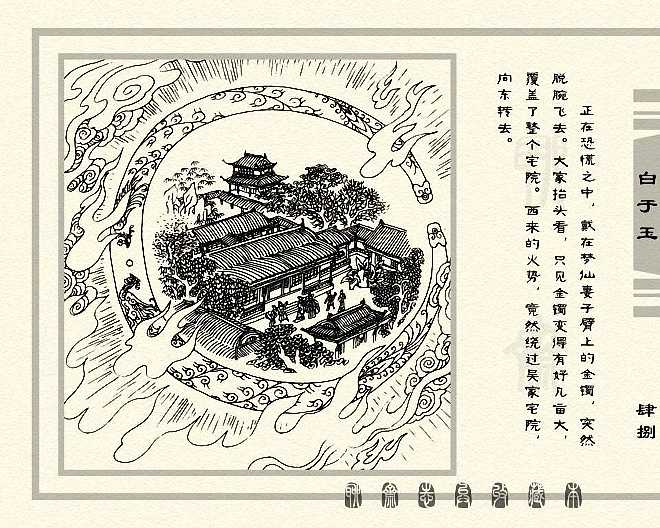 白于玉
肆捌
正在恐慌之中，戴在梦仙妻子臂上的金镯，突然
脱腕飞去。大家抬头看，只见金镯变得有好几亩大，
覆盖了整个宅院。西来的火势，竟然绕过吴家宅院，
向东转去。